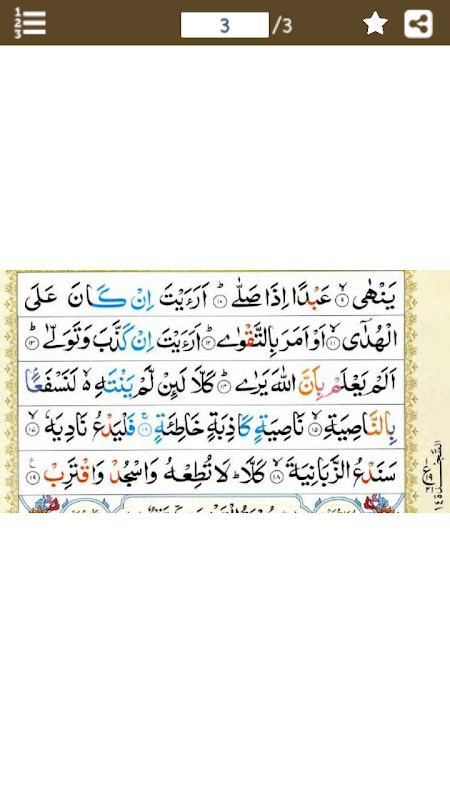 3 /3
يَنْهٰى ۙ﴿۹﴾ عَبْدًا اِذَا صَلّٰى ؕ﴿۱۰﴾ اَرَءَيْتَ اِنْ كَانَ عَلَى
الْهُدٰٓى ۙ﴿۱۱﴾ اَوْ اَمَرَ بِالتَّقْوٰى ؕ﴿۱۲﴾ اَرَءَيْتَ اِنْ كَذَّبَ وَتَوَلّٰى ؕ﴿۱۳﴾
اَلَمْ يَعْلَمْ بِاَنَّ اللّٰهَ يَرٰى ؕ﴿۱۴﴾ كَلَّا لَئِنْ لَّمْ يَنْتَهِ ۙ۬ لَنَسْفَعًۢا
بِالنَّاصِيَةِ ۙ﴿۱۵﴾ نَاصِيَةٍ كَاذِبَةٍ خَاطِئَةٍ ۚ﴿۱۶﴾ فَلْيَدْعُ نَادِيَهٗ ۙ﴿۱۷﴾
سَنَدْعُ الزَّبَانِيَةَ ۙ﴿۱۸﴾ كَلَّا ؕ لَا تُطِعْهُ وَاسْجُدْ وَاقْتَرِبْ ﴿۱۹﴾
السَّجْدَة ۱۴